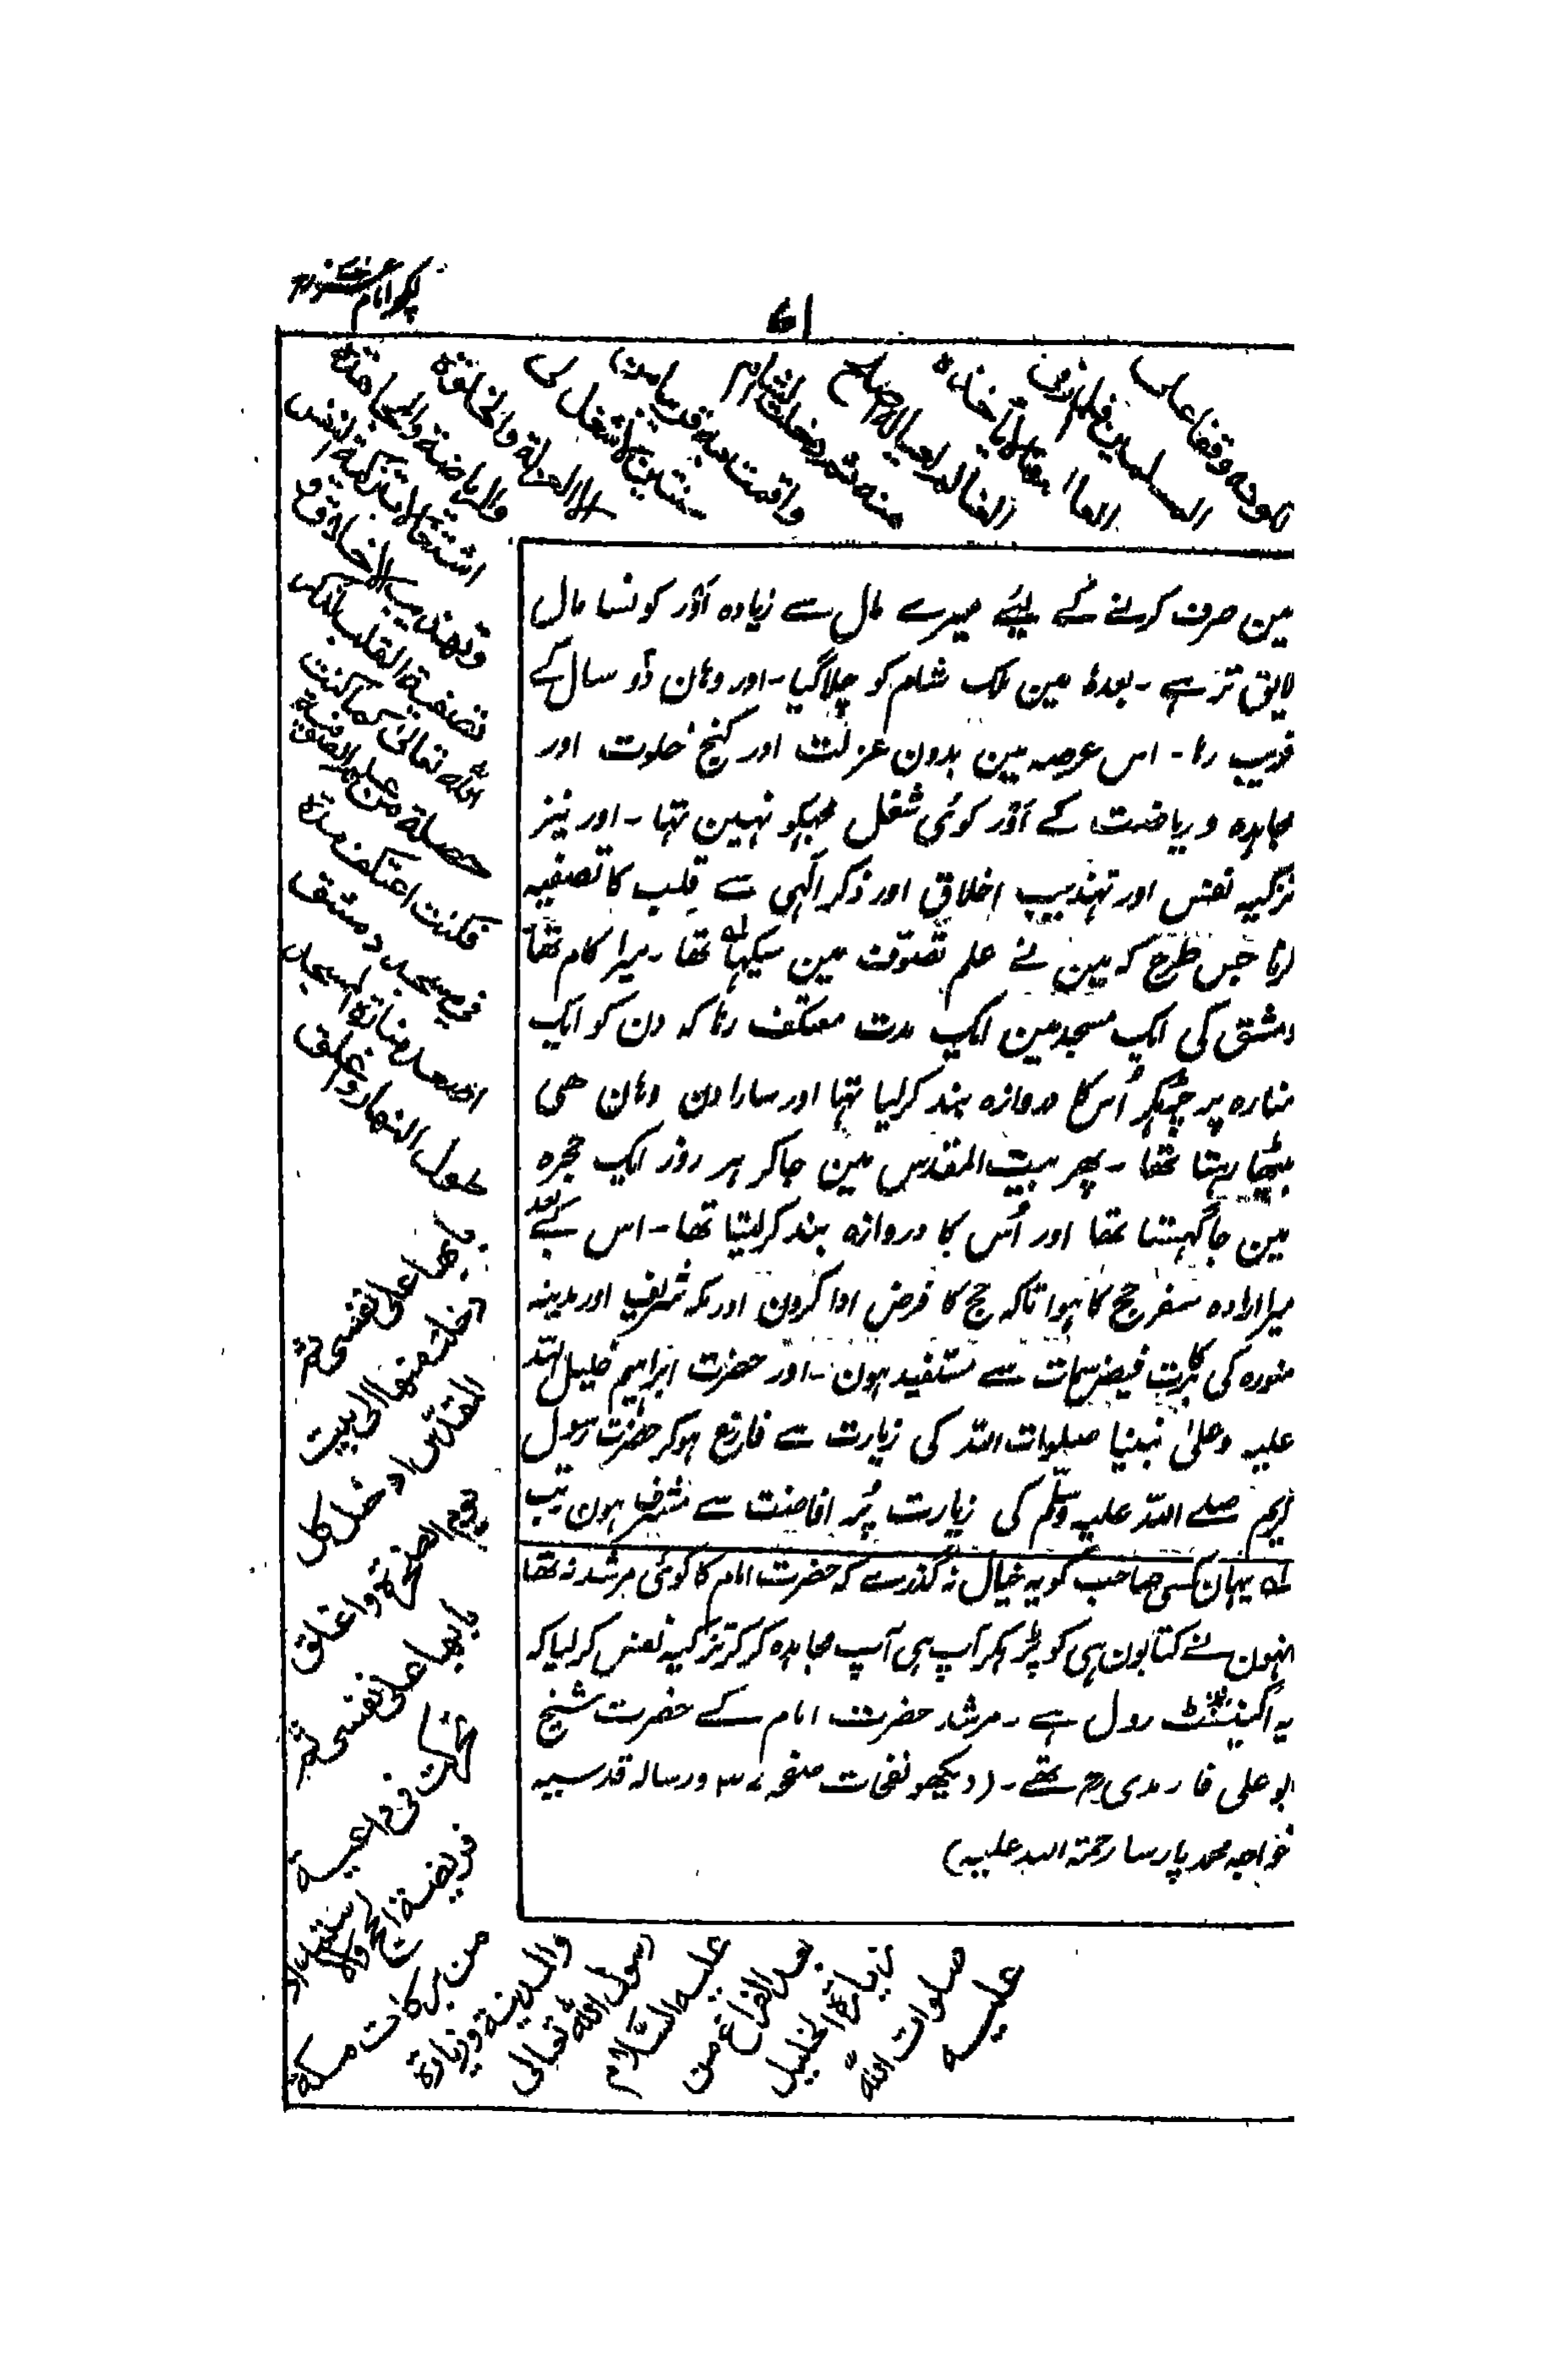 لکچر امام
61
لوجه وقفا على
المسلمين فلم ار فى
العالم مالا ياخذه
العالم لعياله اصلح
منه ثم دخلت الشام
واقمت به قريبا من
سنتين لا شغل لى
الا العزلة والخلوة
والرياضة والمجاهدة
اشتغالا بتزكية النفس
وتهذيب الاخلاق و
تصفية القلب لذكر
الله تعالى كما كنت
حصلته من علم الصوفية
فكنت اعتكف مدة
فى مسجد دمشق
اصعد منارة المسجد
طول النهار واغلق
بابها على نفسى ثم
دخلت منها الى بيت
المقدس ادخل كل
يوم الصخرة واغلق
بابها على نفسى ثم
تحركت فى داعية
فريضة الحج والاستمداد
من بركات مكة
والمدينة وزيارة
رسول الله تعالى
عليه السلام
بعد الفراغ من
زيارة الخليل
صلوات الله
عليه
مین صرف کرنے کے لیئے میرے مال سے زیادہ اَوْر کونسا مال
لایق تر ہے ۔ بعدہٗ مین ملک شام کو چلا گیا ۔ اور وہان دو سال کے
قریب رہا ۔ اس عرصہ مین بدون عزلت اور کنج خلوت اور
مجاہدہ و ریاضت کے اَوْر کوئی شغل مجہکو نہین تہا ۔ اور نیز
تزکیہ نفس اور تہذیب اخلاق اور ذکر الٰہی سے قلب کا تصفیہ
کرنا جس طرح کہ مین نے علم تصوّف مین سیکہا لہ تھا ۔ میرا کام تھا
دمشق کی ایک مسجد مین ایک مدت معتکف رہا کہ دن کو ایک
منارہ پر چڑہکر اُس کا دروازہ بند کرلیا تہا اور سارا دن وہان ھی
بیٹھا رہتا تھا ۔ پھر بیت المقدس مین جاکر ہر روز ایک حجرہ
مین جا گہستا تھا اور اُس کا دروازہ بند کرلیتا تھا ۔ اس کے بعد
میرا ارادہ سفر حج کا ہوا تاکہ حج کا فرض ادا کرون اور مکہ شریف اور مدینہ
منورہ کی برکت فیض سمات سے مستفید ہون ۔ اور حضرت ابراہیم خلیل اللہ
علیہ وعلیٰ نبینا صلوات اللہ کی زیارت سے فارغ ہوکر حضرت رسول
اکرم صلے اللہ علیہ وسلّم کی زیارت پُر افاضت سے مشرف ہون تب
لہ یہان کسی صاحب کو یہ خیال نہ گذرے کہ حضرت امام کا کوئی مرشد نہ تھا
انہون نے کتابون ہی کو پڑہکر آپ ہی آپ مجاہدہ کر کر تزکیہ نفس کرلیا کہ
یہ اگینسٹ رول ہے ۔ مرشد حضرت امام کے حضرت شیخ
ابو علی فارمدی رح تھے ۔ (دیکھو نفحات صفحہ ۳۷ ورسالہ قدسیہ
خواجہ محمد پارسا رحمۃ اللہ علیہ)